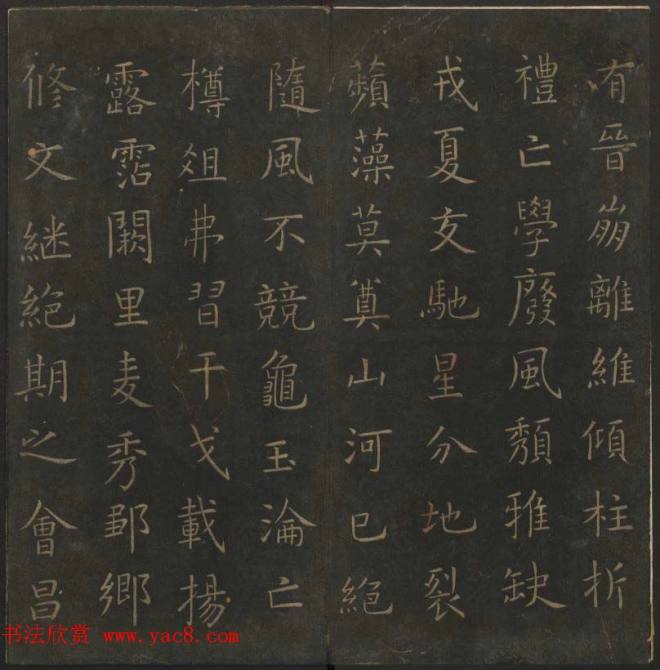 有晉崩離維傾柱折
禮亡學廢風頽雅缺
戎夏交馳星分地裂
蘋藻莫奠山河已絕
隨風不競龜玉淪亡
樽俎弗習干戈載揚
露霑闕里麦秀鄒鄉
修文継絕期之會昌
书法欣赏 www.yac8.com